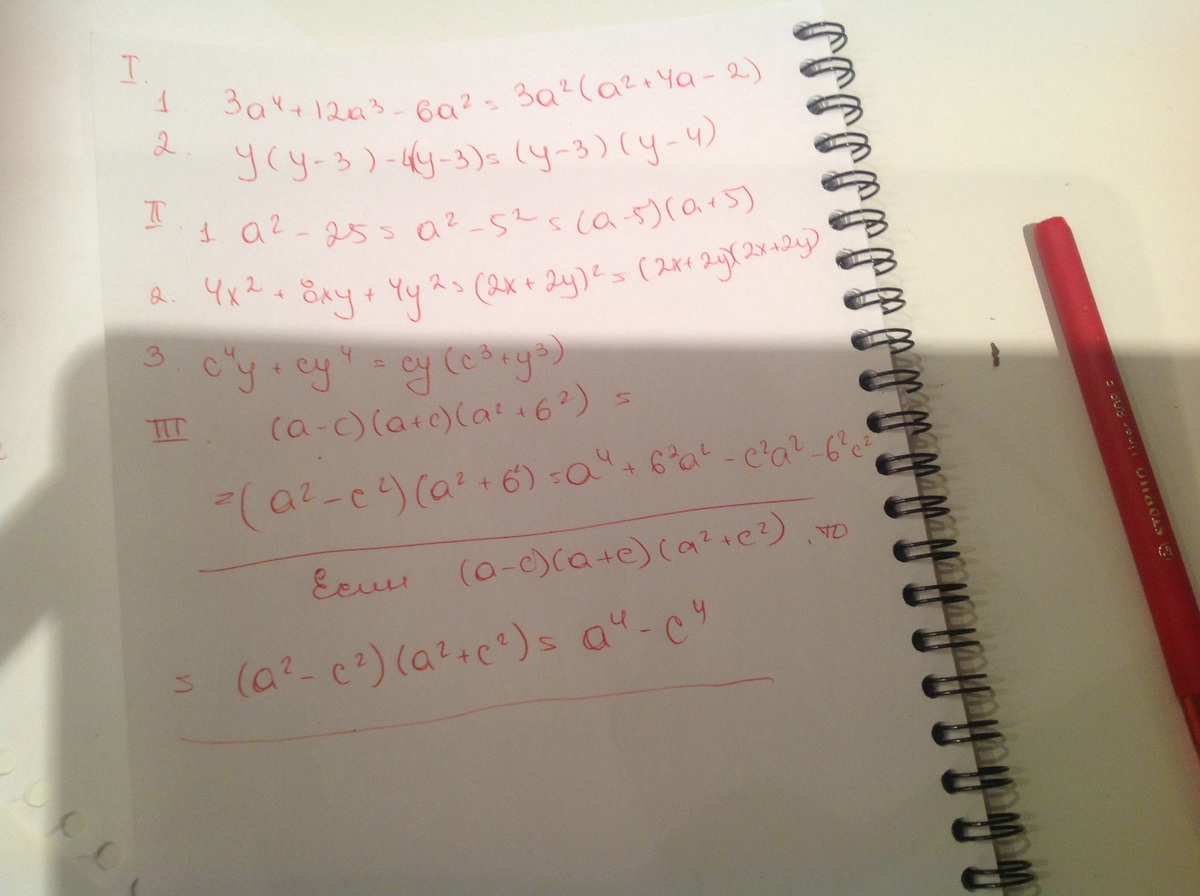 I.
1. 3a⁴ + 12a³ - 6a² = 3a²(a² + 4a - 2)
2. y(y-3) - 4(y-3) = (y-3)(y-4)
II
1. a² - 25 = a² - 5² = (a-5)(a+5)
2. 4x² + 8xy + 4y² = (2x+2y)² = (2x+2y)(2x+2y)
3. c⁴y + cy⁴ = cy(c³+y³)
III. (a-c)(a+c)(a²+б²) =
= (a²-c²)(a²+б²) = a⁴ + б²a² - c²a² - б²c²
Если (a-c)(a+c)(a²+c²), то
= (a²-c²)(a²+c²) = a⁴ - c⁴